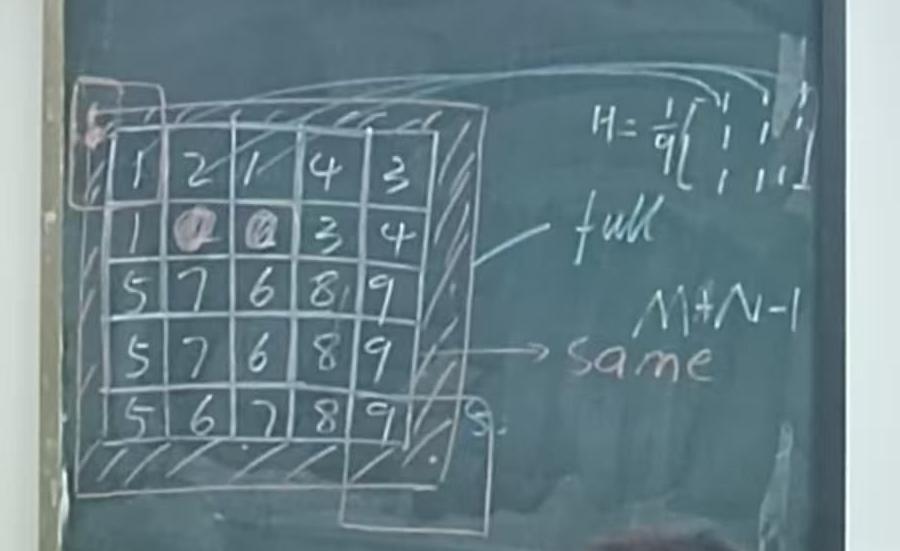 H = 1/9 [ 1 1 1
1 1 1
1 1 1 ]
1 2 1 4 3
1 2 2 3 4
5 7 6 8 9
5 7 6 8 9
5 6 7 8 9
full
M+N-1
same